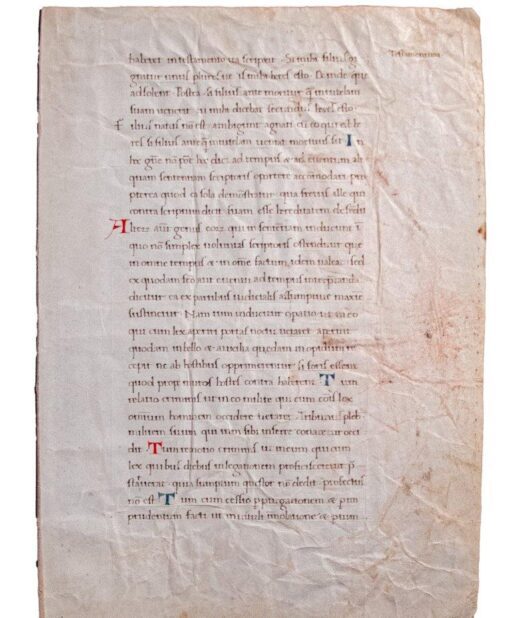 haberet in testamento ita scripsit. Si mihi filius gi
gnitur unus plures ue is mihi heres esto. Deinde que
adsolent. Postea. si filius ante moritur qͣ in tutelam
suam uenerit. tu mihi dicetur secundus heres esto.
filius natus nō est. ambigunt agnati cū eo qui est he
res si filius anteqͣ in tutelam ueniat mortuus sit. In
hoc gn̄e nō pōt hoc dici ad tempus & ad euentum ali
quam sententiam scriptoris oportere accōmodari. pro
pterea quod ea sola demōstratur qua fretus ille qui
contra scriptum dicit suam esse hereditatem defēdit.
Alterꝝ aūt genus eorꝝ qui in sententiam inducunt ī
quo nō simplex uoluntas scriptoris ostenditur que
in omne tempus & in om̄e factum idem ualeat. sed
ex quodam facto aut euentu ad tempus interpretanda
dicitur. ea ex partibus iudicialis assumptiue maxīe
sustinetur. Nam tum inducitur
qui cum lex aperiri portas noctu uetaret. aperuit
quodam in bello & auxilia quedam in opidum re
cepit. ne ab hostibus opprimerentur si foris essent
quod prope muros hostes castra haberent. Tum
relatio criminis ut in eo milite qui cum cōis lex
omnium hominem occidere uetaret. Tribunū pleb.
militem suum qui uim sibi inferre conaretur occi
dit. Tum remotio criminis ut in eum qui cum
lex quibus diebus in legationem proficisceretur p̄
stituerat. quia sumptum questor nō dedit. profectus
nō est. Tum cum cessio p̄ purgationem & p̄ im
prudentiam facti ut in uituli imolatione & p̄ uim
Testamentum